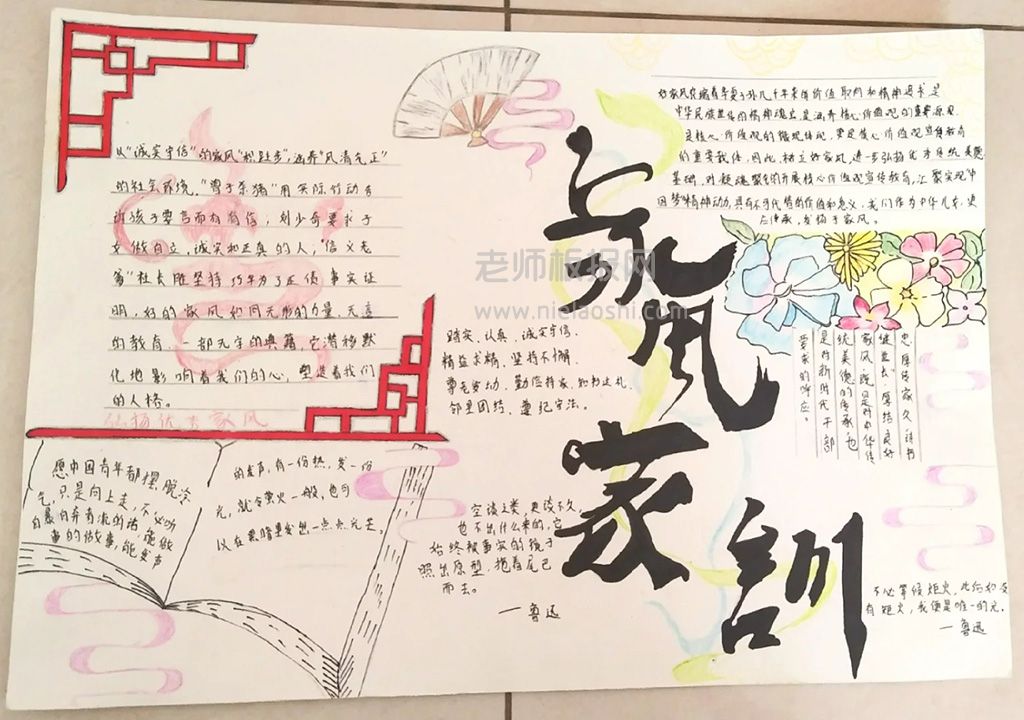 以"诚实守信"的家风"积跬步",涵养"风清气正"
的社会环境,"曾子杀猪"用实际行动告
诉孩子要言而有信;刘少奇要求子
女做自立,诚实和正真的人,"信义老
爹"杜长胜坚持巧年为子还债事实证
明,好的家风如同无形的力量,无言
的教育,一部无字的典籍,它潜移默
化地影响着我们的心,塑造着我们
的人格。
弘扬优秀家风
愿中国青年都摆脱冷
气,只是向上走,不必听
自暴自弃者流的话,能做
事的做事,能发声
的发声,有一份热,发一份
光,就令萤火一般,也可
以在黑暗里发出一点点光芒。
踏实、认真、诚实守信、
精益求精、坚持不懈、
尊老爱幼、勤俭持家、知书达礼、
邻里团结、遵纪守法。
空谈之类,是谈不久,
也不出什么来的,它
始终被事实的镜子
照出原型,拖着尾巴
而去。
—鲁迅
家风
家训
老师板报网
www.nielaoshi.com
好家风凝聚着华夏子孙几千年来的价值取向和精神追求是
中华民族
的重要载体,因此,树立好家风,进一步弘扬优秀传统美德
基础,对凝魂聚气的开展核心价值观宣传教育,汇聚实现"中
国梦"精神动力,具有不可代替的价值和意义,我们作为中华儿女,更
应传承,发扬于家风。
忠厚传家久,诗书
继世长,厚植良好
家风,既是对中华传
统美德的传承,也
是对新时代干部
要求的呼应。
不必等候炬火,此后如没
有炬火,我便是唯一的光。
—鲁迅